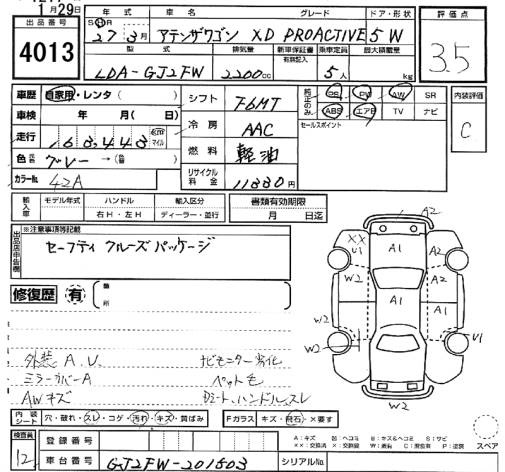 月29日
出品番号
4013
年式 車名 グレード ドア・形状
27 3月 アテンザワゴン XD PROACTIVE 5W
評価点
3.5
型式 排気量 新車保証書 乗車定員 最大積載量
有無記入
LDA-GJ2FW 2200cc 5人 kg
車歴 自家用・レンタ( )
シフト F6MT
純正のみ PS PW AW SR
ABS エアB TV ナビ
内装評価
C
車検 年 月( 日)
冷房 AAC
セールスポイント
走行 163,443 km マイル
燃料 軽油
色 グレー →( )
カラーNo. 42A
リサイクル料金 11880円
輸入車 モデル年式 ハンドル 輸入区分
右H・左H ディーラー・並行
書類有効期限
月 日迄
出品店申告欄
※注意事項等記載
セーフティクルーズパッケージ
修復歴 有
箇所
A2
XX
U1
A1
A2
W2
A2
A1
A1
W2
W2
U1
W2
外装 A.U. ナビモニター劣化
ミラーカバーA ペット毛
AWキズ
内装シート 穴・破れ・スレ・コゲ・汚れ・キズ・黄ばみ
Fガラス キズ・飛石・×要す
スペア
検査員
12
登録番号
車台番号 GJ2FW-201503
シリアルNo.